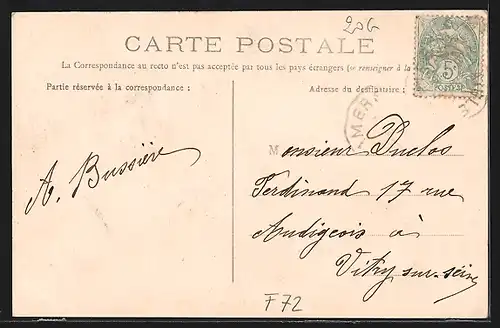 206
CARTE POSTALE
La Correspondance au recto n'est pas acceptée par tous les pays étrangers (se renseigner à la
Partie réservée à la correspondance :
Adresse du destinataire :
5c
POSTES
AMER
A. Bussière
Monsieur Duclos
Ferdinand 17 rue
Audigeois à
Vitry-sur-Seine
F72